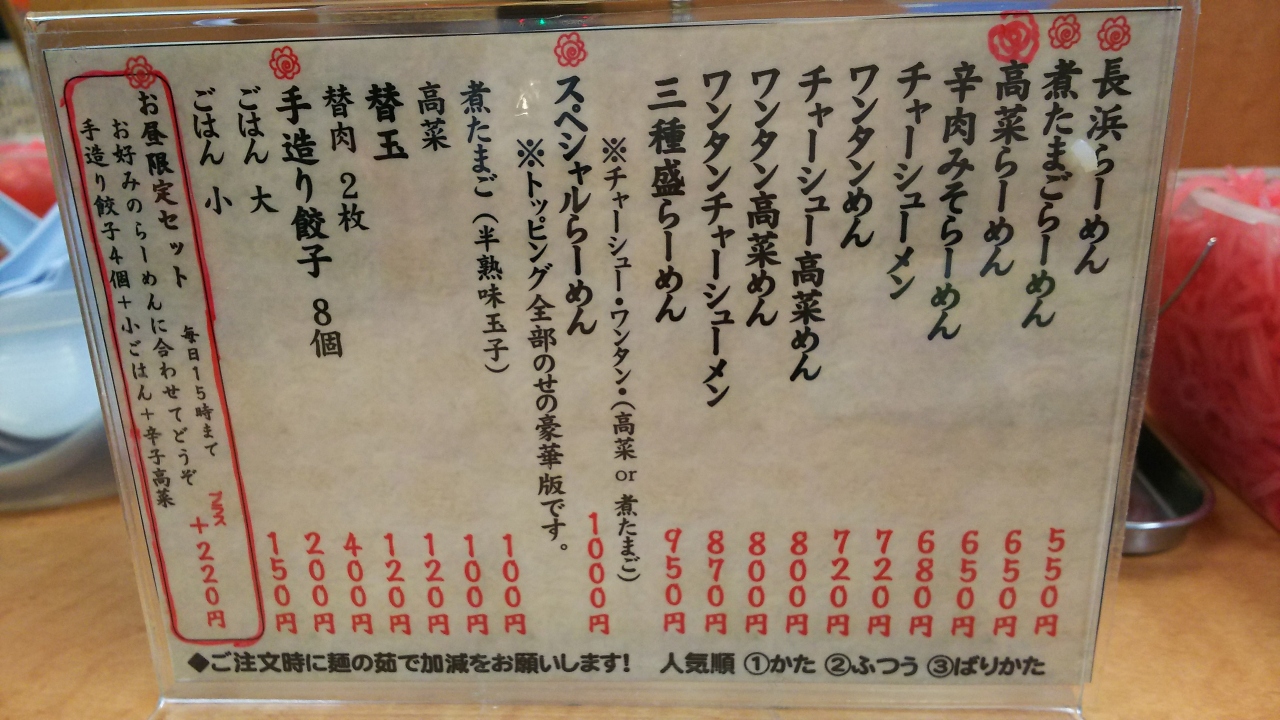 長浜らーめん 550円
煮たまごらーめん 650円
高菜らーめん 650円
辛肉みそらーめん 680円
チャーシューメン 720円
ワンタンめん 720円
チャーシュー高菜めん 800円
ワンタン高菜めん 800円
ワンタンチャーシューメン 870円
三種盛らーめん 950円
※チャーシュー・ワンタン・(高菜 or 煮たまご)
スペシャルらーめん 1000円
※トッピング全部のせの豪華版です。
煮たまご(半熟味玉子) 100円
高菜 100円
替玉 120円
替肉 2枚 120円
手造り餃子 8個 400円
ごはん 大 200円
ごはん 小 150円
お昼限定セット 毎日15時まで プラス +220円
お好みのらーめんに合わせてどうぞ
手造り餃子4個+小ごはん+辛子高菜
◆ご注文時に麺の茹で加減をお願いします! 人気順 ①かた ②ふつう ③ばりかた